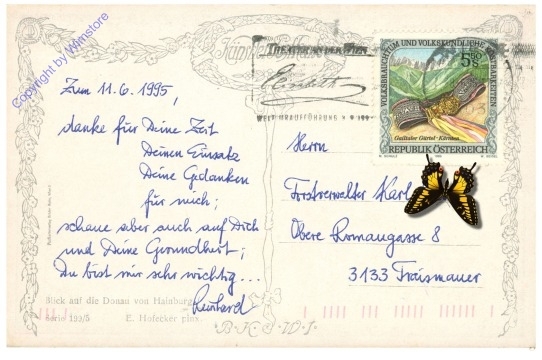 Copyright by Wimstore
THEATER AN DER WIEN
Elisabeth
VOLKSBRAUCHTUM UND VOLKSKUNDLICHE KOSTBARKEITEN
5.50 S
Gailtaler Gürtel - Kärnten
REPUBLIK ÖSTERREICH
Zum 11.6.1995,
danke für Deine Zeit
Deinen Einsatz
Deine Gedanken
für mich;
schaue aber auch auf Dich
und Deine Gesundheit;
Du bist mir sehr wichtig...
Leinhard
Blick auf die Donau von Hainburg
Serie 193/5 E. Hofecker pinx.
Herrn
Forstverwalter Karl
Obere Romangasse 8
3133 Traismauer
B.K.W.I.